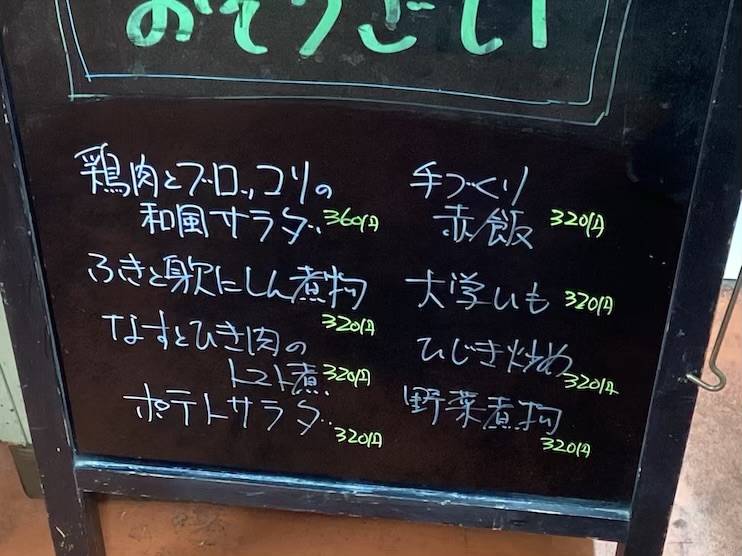 おそうざい
鶏肉とブロッコリの
和風サラダ 360円
ふきと身欠にしん煮物
320円
なすとひき肉の
トマト煮 320円
ポテトサラダ
320円
手づくり
赤飯 320円
大学いも 320円
ひじき炒め
320円
野菜煮物
320円